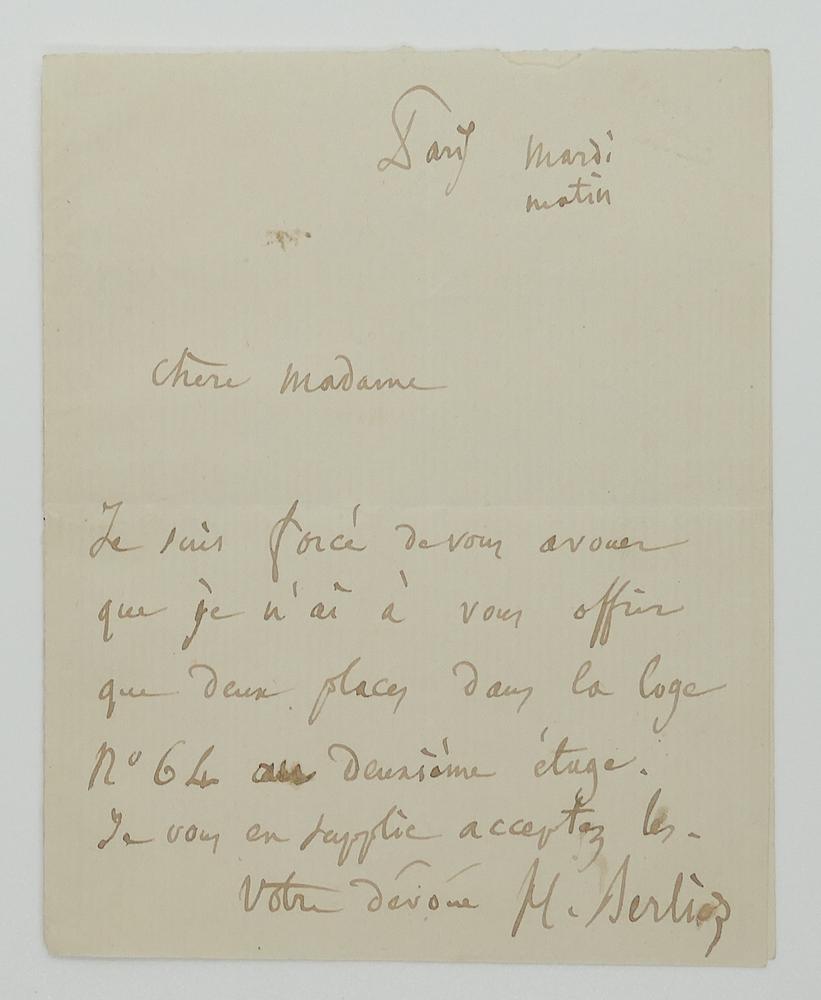 Paris Mardi
matin
chère madame
Je suis forcé de vous avouer
que je n'ai à vous offrir
que deux places dans la loge
No 64 au deuxième étage.
Je vous en supplie acceptez les.
Votre dévoué H. Berlioz